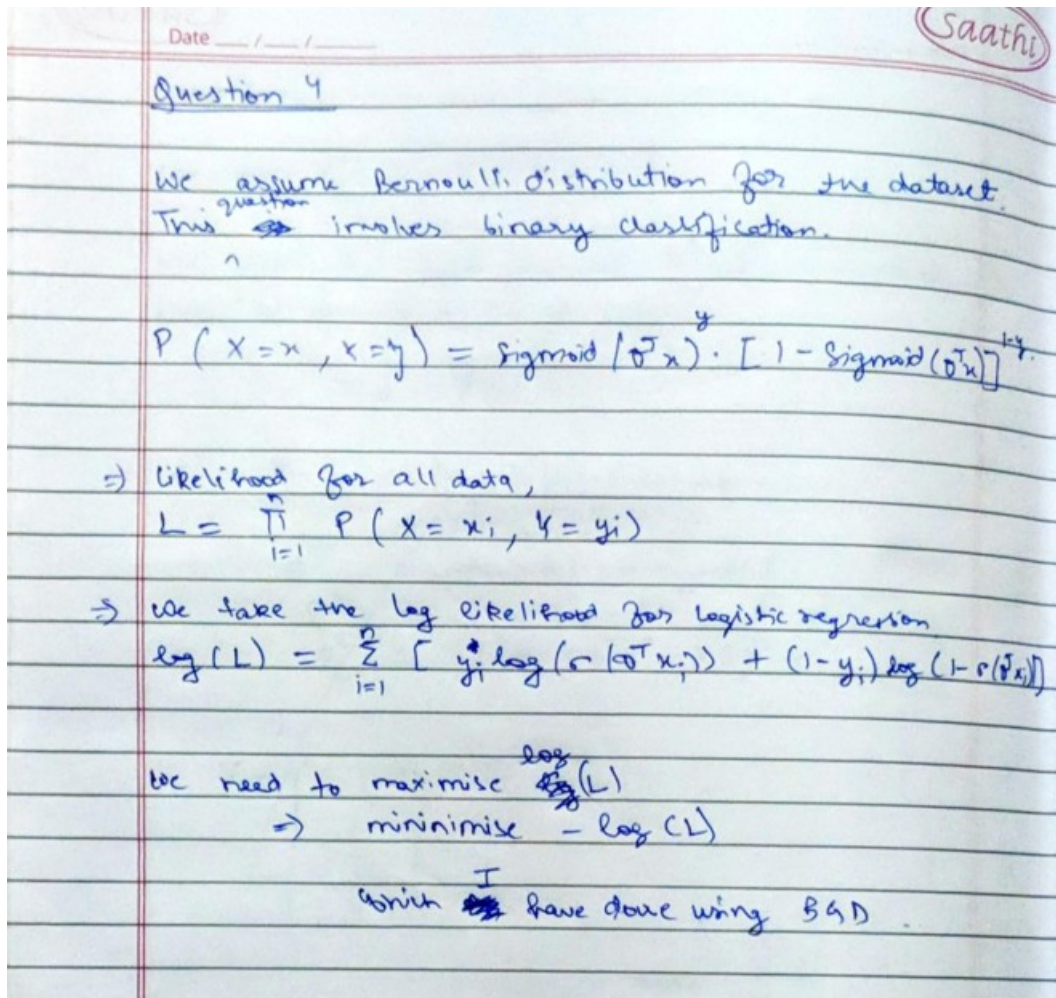 Date __/__/____
Saathi
Question 4
We assume Bernoulli distribution for the dataset.
This question involves binary classification.
P ( X = x , Y = y ) = Sigmoid (θᵀx)^y · [ 1 - Sigmoid (θᵀx)]^1-y.
=> Likelihood for all data,
L = n Π i=1 P ( X = xi , Y = yi )
=> We take the log likelihood for logistic regression
log (L) = n Σ i=1 [ yi log (σ (θᵀxi)) + (1-yi) log (1- σ(θᵀxi))]
We need to maximise log (L)
=> mininimise - log (L)
which I have done using BGD.